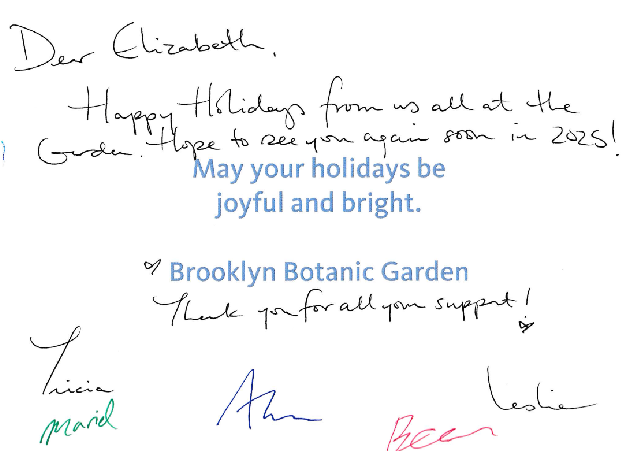 Dear Elizabeth,
Happy Holidays from us all at the
Garden. Hope to see you again soon in 2025!
May your holidays be
joyful and bright.
Brooklyn Botanic Garden
Thank you for all your support!
Tricia
Leslie